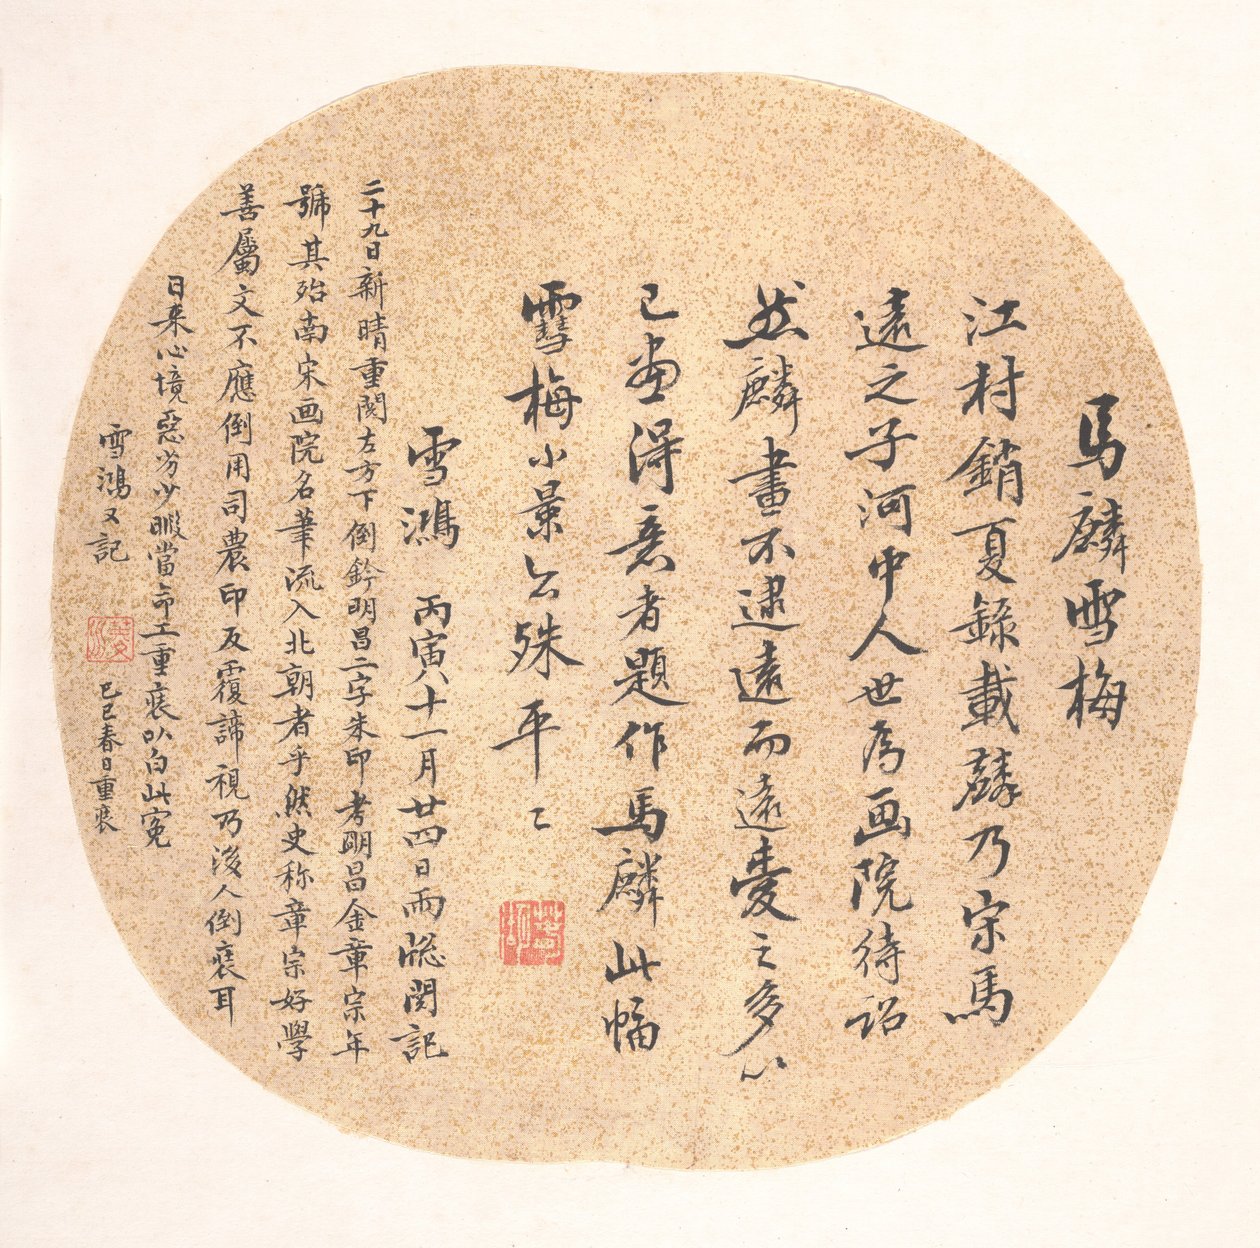 馬麟雪梅
江村銷夏錄載麟乃宋馬
遠之子河中人世為画院待詔
然麟畫不逮遠而遠愛之多以
己画得意者題作馬麟此幅
雪梅小景公殊平〻
雪鴻 丙寅十一月廿四日雨牕閱記
二十九日新晴重閱左方下倒鈐明昌二字朱印考明昌金章宗年
號其殆南宋画院名筆流入北朝者乎然史称章宗好學
善屬文不應倒用司農印反覆諦視乃後人倒裱耳
日來心境惡劣少暇當命工重裱以白此冤
雪鴻又記 己巳春日重裱